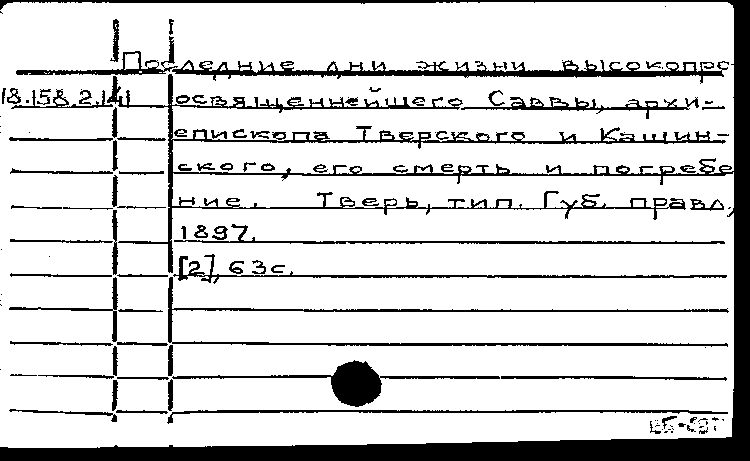 Последние дни жизни высокопре
18.158.2.141 освященнейшего Саввы, архи-
епископа Тверского и Кашин-
ского, его смерть и погребе
ние. Тверь, тип. Губ. правл,
1897.
[2], 63с.